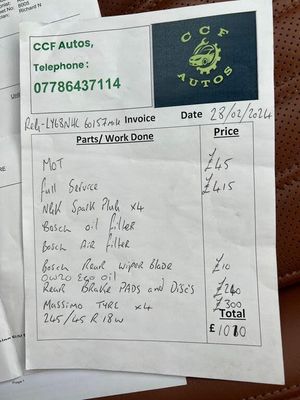 Richard N
CCF Autos,
Telephone :
07786437114
CCF
AUTOS
Invoice
Date 28/02/2024
Parts/Work Done
Price
MOT £45
Full Service £415
NGK Spark Plub x4
Bosch oil filter
Bosch Air filter
Bosch Rear wiper blade £10
0w20 Ego oil
Rear Brake PADS and Discs £240
Massimo TYRE x4 £300
245/45 R 18w
Total
£ 1010
Page 1